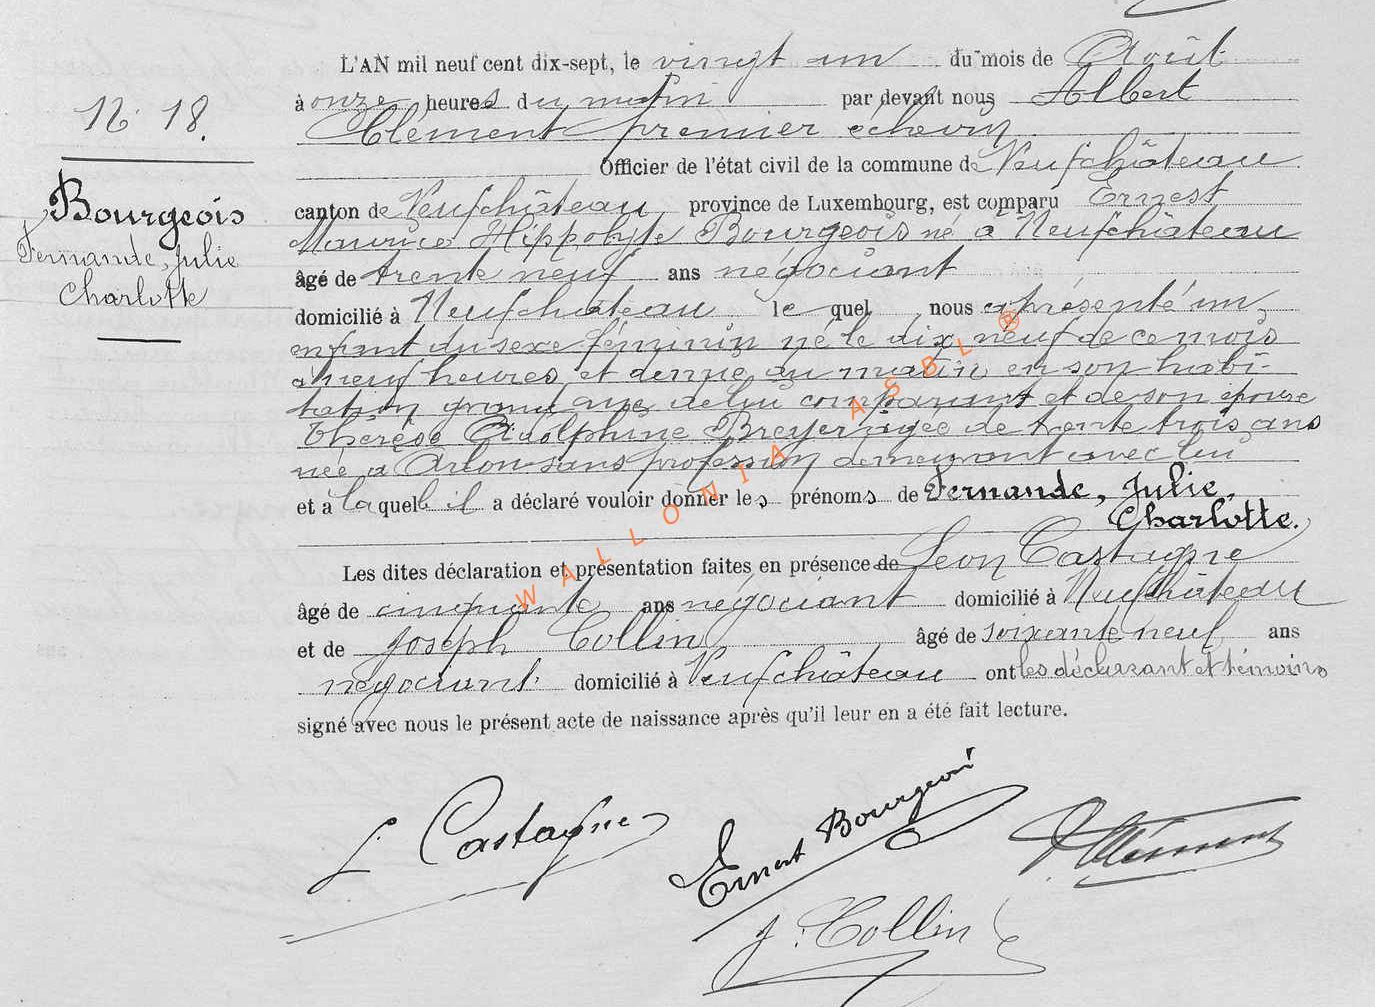 L'AN mil neuf cent dix-sept, le vingt un du mois de Août
N. 18.
à onze heures du matin par devant nous Albert
Clément premier échevin
Officier de l'état civil de la commune de Neufchâteau
Bourgeois
Fernande, Julie
Charlotte
canton de Neufchâteau province de Luxembourg, est comparu Ernest
Maurice Hippolyte Bourgeois né à Neufchâteau
âgé de trente neuf ans négociant
domicilié à Neufchâteau le quel nous a présenté un
enfant du sexe féminin né le dix neuf de ce mois
à neuf heures et demie du matin en son habi-
tation grand rue de lui comparant et de son épouse
Thérèse Adolphine Breyer âgée de trente trois ans
née à Arlon sans profession demeurant avec lui
et à laquelle il a déclaré vouloir donner les prénoms de Fernande, Julie,
Charlotte.
Les dites déclaration et présentation faites en présence de Léon Castagne
âgé de cinquante ans négociant domicilié à Neufchâteau
et de Joseph Collin âgé de soixante neuf ans
négociant domicilié à Neufchâteau ont les déclarant et témoins
signé avec nous le présent acte de naissance après qu'il leur en a été fait lecture.
L Castagne
Ernest Bourgeois
Clément
J. Collin
WALLONIA ASBL ®